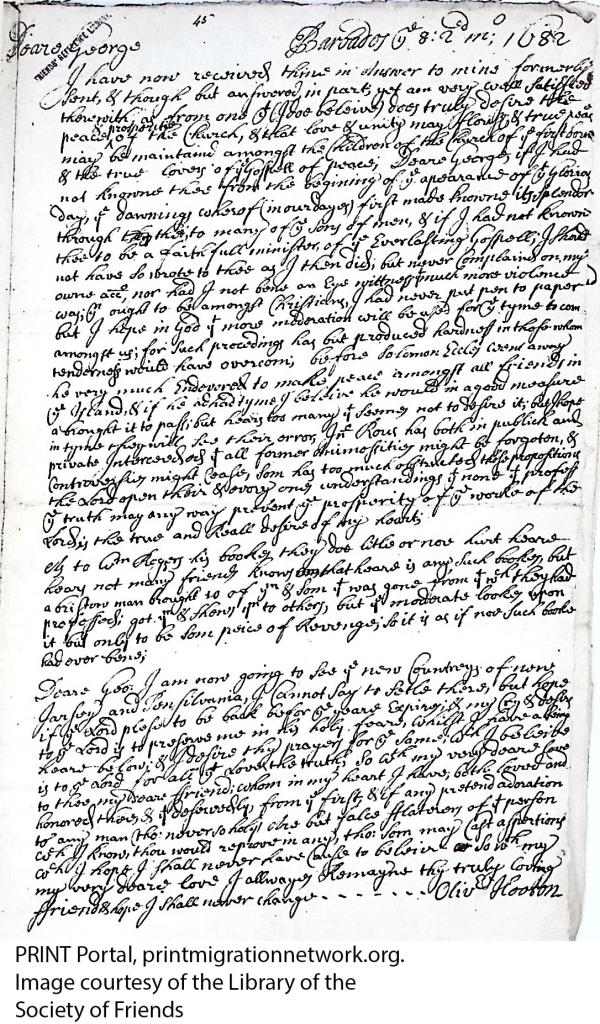 45
FRIENDS REFERENCE LIBRARY
Deare George Barbados ye 8: 2d mo; 1682
I have now received thine in answer to mine formerly
sent, & though but answered in part, yet am very well satisfied
therewith, as from one yt I doe beleive, does truly desire the
peace & prosperity of the Church, & that love & unity may flow, & true peace
may be maintaind amongst the children of the Church of ye first borne
& the true lovers of ye Gospell of peace; Deare George, if I had
not knowne thee from the begining of ye apearance of ye Glorious
day, ye dawnings wherof (in our dayes) first made knowne its splendor
through thee, to many of ye sons of men, & if I had not known
thee to be a faithfull minister, of ye Everlasting Gospell; I should
not have so wrote to thee as I then did; but never complaind on my
owne acc, nor had I not bene an Eye wittness much more violence
was, yn ought to be amongst Christians, I had never put pen to paper
but I hope in God yt more moderation will be used for ye tyme to com
amongst us; for such procedings has but produced hardness in those whom
tenderness would have overcom; before Solomon Eccles went away
he very much Endevered to make peace amongst all friends in
ye Island, & if he had tyme I beleive he would in a good measure
a brought it to pass; but hears too many yt seemes not to desire it; but I hope
in tyme they will see their error, Jno Rous has both in publick and
private Interceeded yt all former animossities might be forgoten, &
controversies might Cease, som has too much obstructed those propositions
the Lord open their & every ones understandings yt none yt profess
ye truth may any way prevent ye prosperity of ye worke of the
Lord; is the true and Reall desire of my heart;
As to Wm Rogers his bookes they doe litle or noe hurt heare
heare not many friends knows that heare is any such bookes, but
a bristow man brought 10 of ym & som yt was gone from yt wch they had
professed; got ym & shows ym to others, but ye moderate lookes upon
it but only to be som peice of Revenge; so it is as if noe such booke
had ever bene;
Deare Geo: I am now going to see ye new Countreys of new
Jarsey and Pensilvania, I Cannot say to setle there, but hope
if ye Lord plese to be back before ye yeare Expire; & my Cry & desire
to ye Lord is to preserve me in his holy feare, whilst I have a being
heare below; & I desire thy prayers for ye same; wch I beleive
is to ye Lord for all yt Loves the truth; so wth my very deare love
to thee my deare friend; whom in my heart I have; both loved and
honored there, & yt deservedly from ye first; & if any pretend adoration
to any man (tho: never so holy) are but false flaterers of yt person
wch I know, thou would reprove in any, tho: som may Cast aspertions
wch I hope I shall never have Cause to beleive so wth my
my very deare love I allwayes Remayne thy truly loving
ffriend & hope I shall never change - - - - - - - Olivr Hooton
PRINT Portal, printmigrationnetwork.org.
Image courtesy of the Library of the
Society of Friends